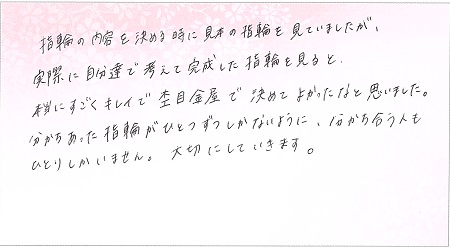 指輪の内容を決める時に見本の指輪を見ていましたが、
実際に自分達で考えて完成した指輪を見ると、
本当にすごくキレイで杢目金屋で決めてよかったなと思いました。
分かちあった指輪がひとつずつしかないように、分かち合う人も
ひとりしかいません。大切にしていきます。